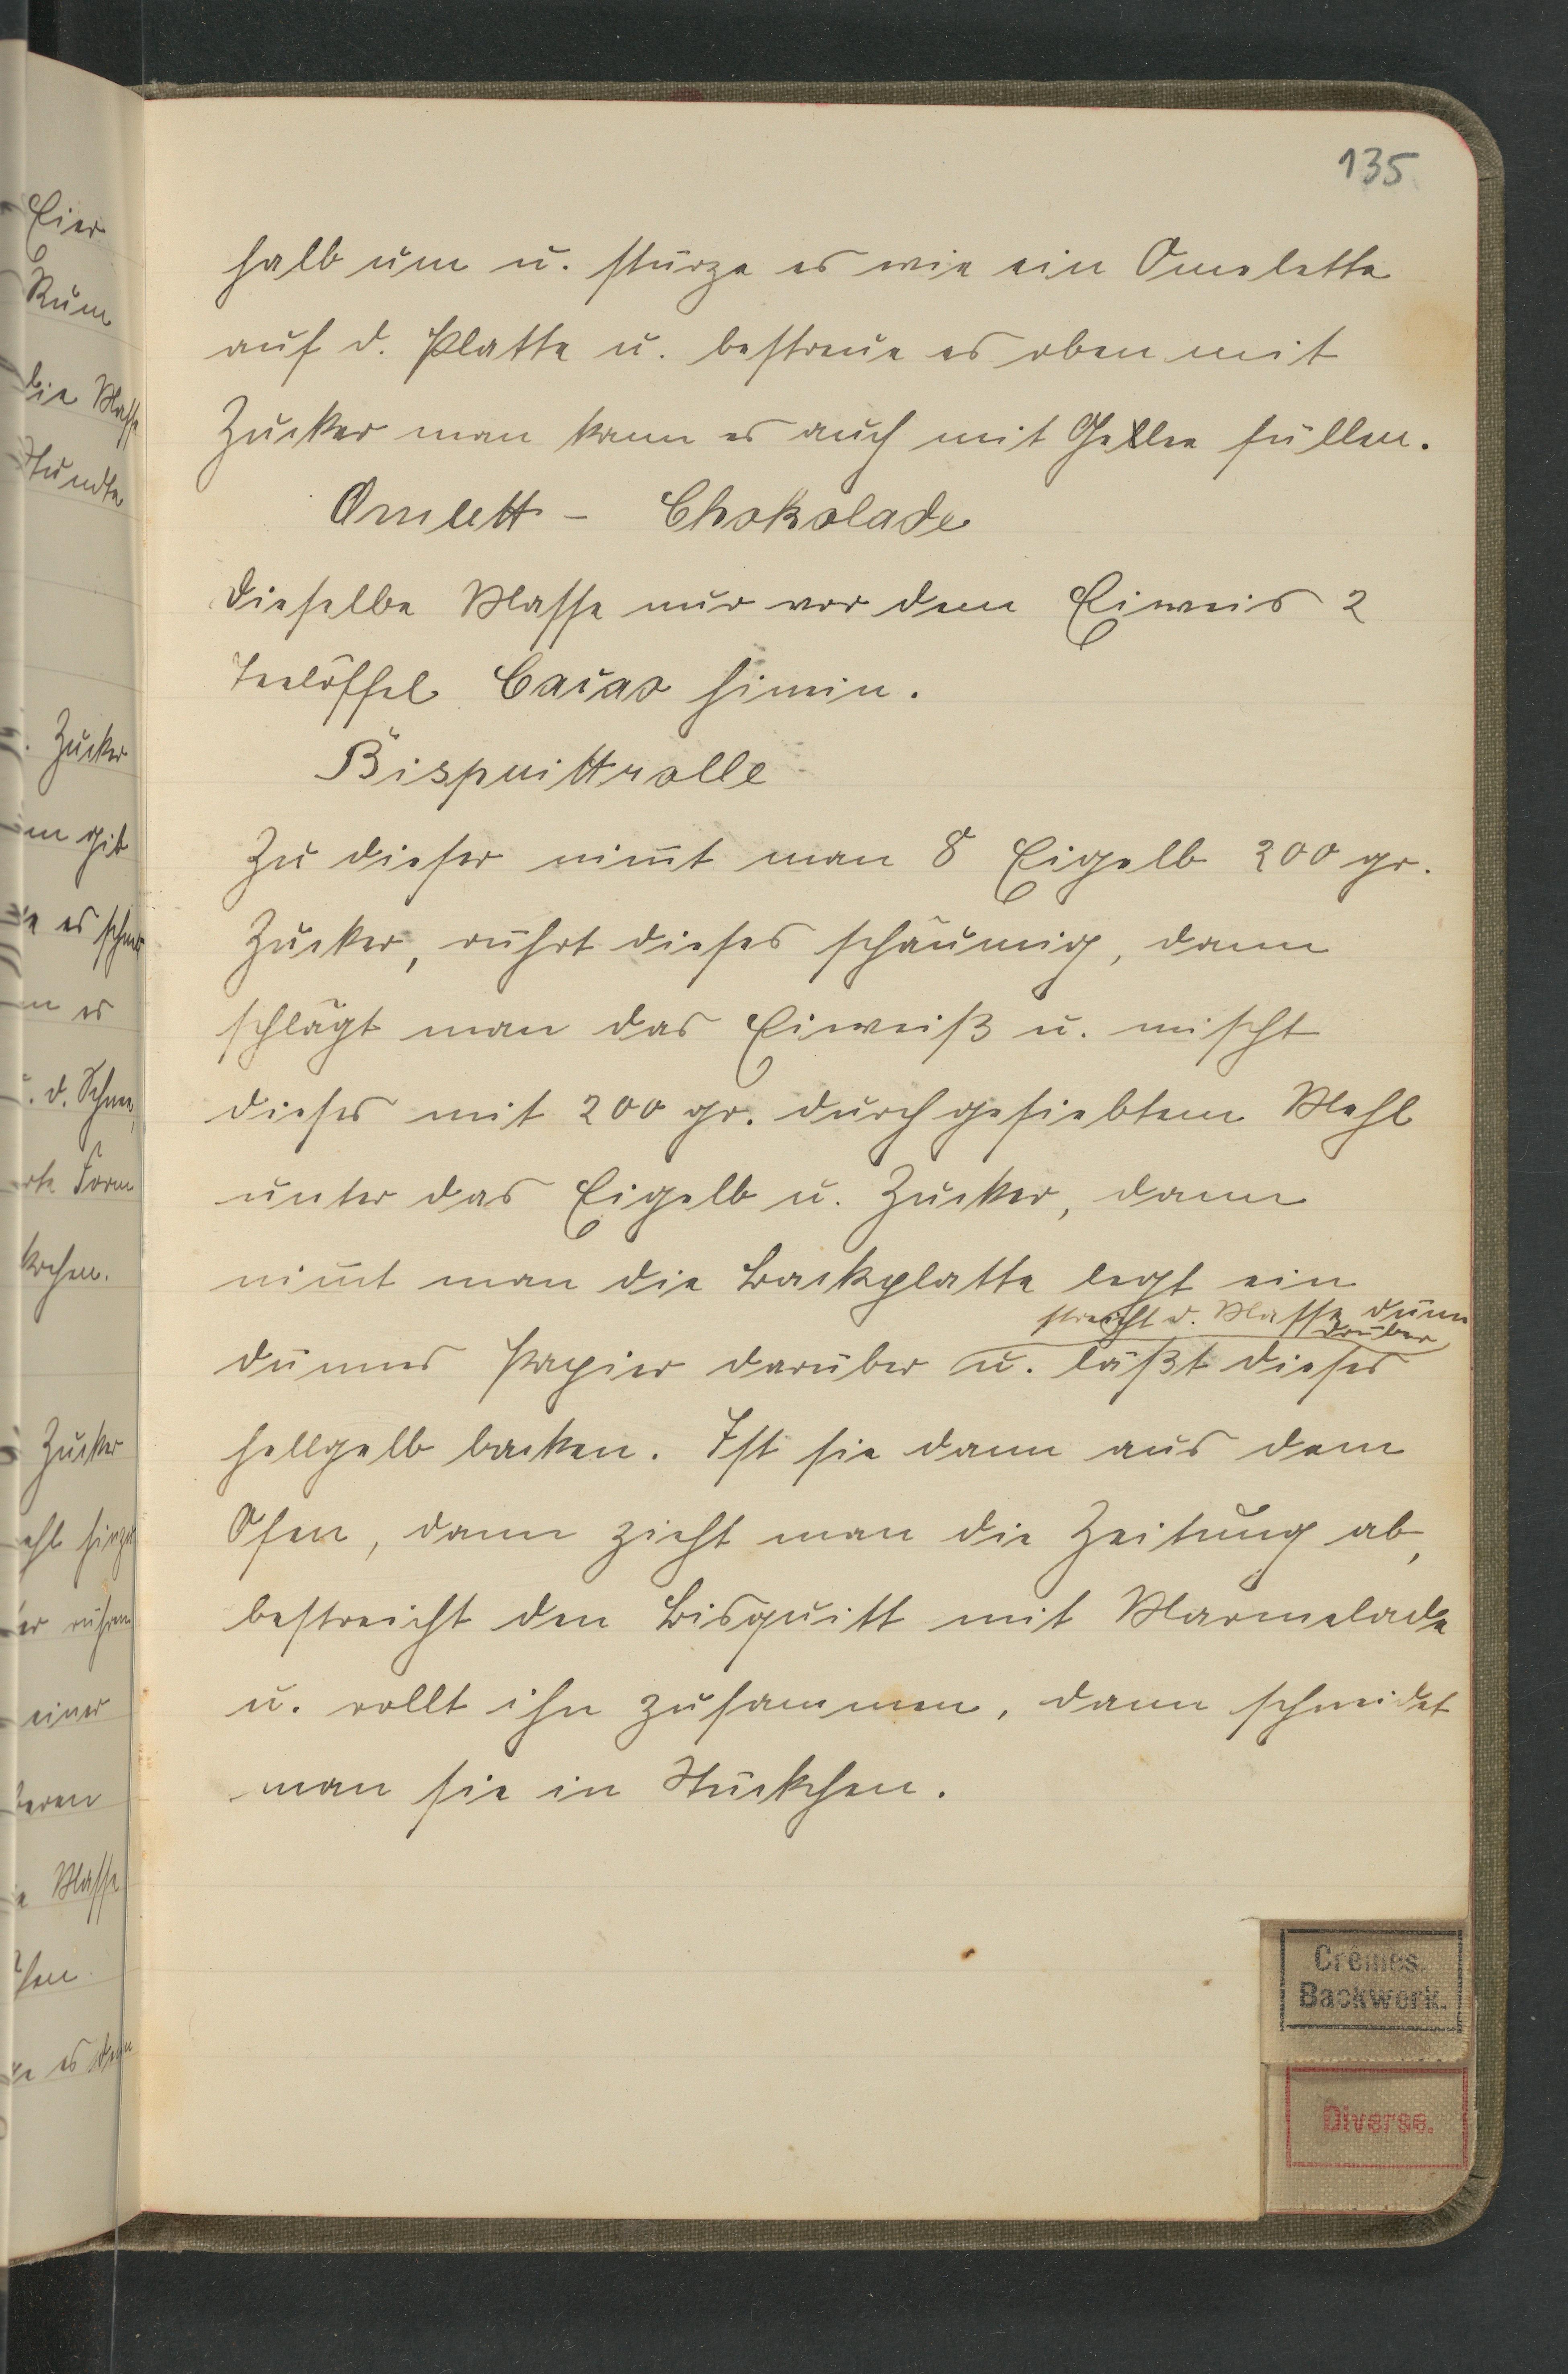 135
halb um u. stürze es wie ein Omelette
auf d. Platte u. bestreue es oben mit
Zucker man kann es auch mit Gellee füllen.
Omlett - Chokolade
Dieselbe Masse nur vor dem Eiweis 2
Teelöffel Cacao hinein.
Bisquittrolle
Zu dieser nim̅t man 8 Eigelb 200 gr.
Zucker, rührt dieses schäumig, dann
schlägt man das Eiweiß u. mischt
dieses mit 200 gr. durchgesiebtem Mehl
unter das Eigelb u. Zucker, dann
nim̅t man die Backplatte legt ein
streicht d. Masse dünn
drüber
dünnes Papier darüber u. läßt dieses
hellgelb backen. Ist sie dann aus dem
Ofen, dann zieht man die Zeitung ab,
bestreicht den Bisquitt mit Marmelade
u. rollt ihn zusammen, dann schneidet
man sie in Stückchen.
Crêmes.
Backwerk.
Diverse.
Eier
Rum
die Masse
Stunde
Zucker
gib
es
es
d. Schnee
Form
kochen.
Zucker
rühren
einer
Masse
es